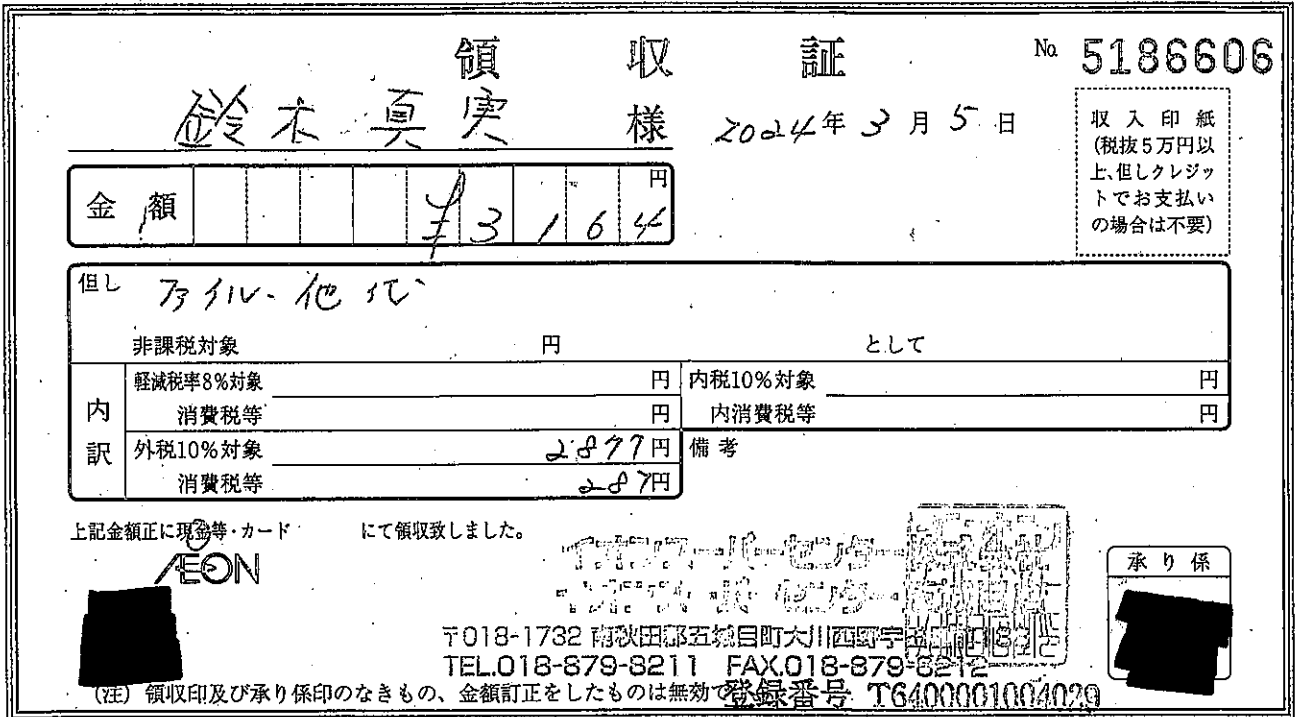 領収証
No. 5186606
鈴木真実 様
2024年3月5日
収入印紙
(税抜5万円以
上、但しクレジッ
トでお支払い
の場合は不要)
金額 ¥3164円
但し ファイル・他代
非課税対象 円 として
内訳
軽減税率8%対象 円
消費税等 円
内税10%対象 円
内消費税等 円
外税10%対象 2877円
消費税等 287円
備考
上記金額正に現金等・カード にて領収致しました。
ÆON
承り係
〒018-1732 南秋田郡五城目町大川西野字
TEL.018-879-8211 FAX.018-879-8212
(注) 領収印及び承り係印のなきもの、金額訂正をしたものは無効で
登録番号 T6400001004029